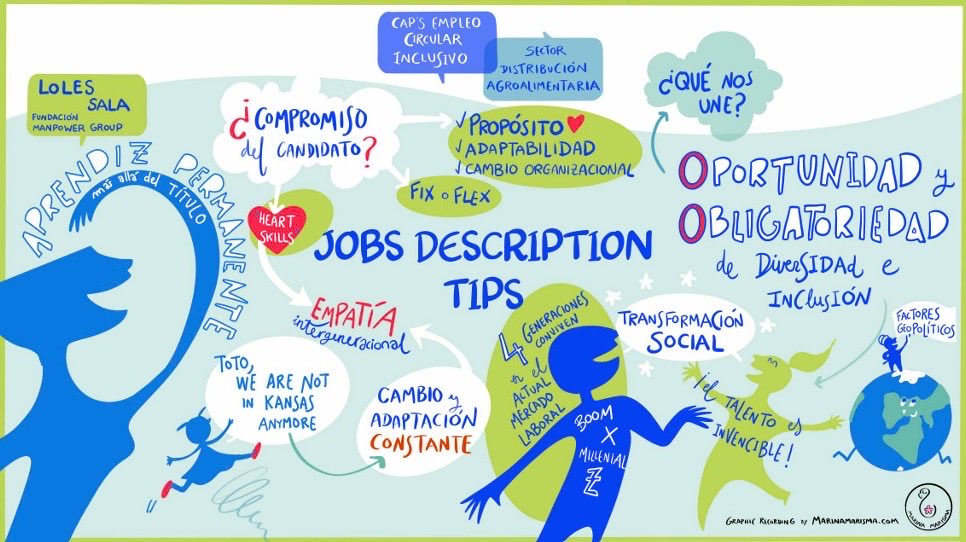 CAP'S EMPLEO
CIRCULAR
INCLUSIVO
SECTOR
DISTRIBUCIÓN
AGROALIMENTARIA
LOLES
SALA
FUNDACIÓN
MANPOWER GROUP
¿COMPROMISO
del CANDIDATO?
✓ PROPÓSITO ♥
✓ ADAPTABILIDAD
✓ CAMBIO ORGANIZACIONAL
FIX o FLEX
¿QUÉ NOS
UNE?
OPORTUNIDAD y
OBLIGATORIEDAD
de DIVERSIDAD e
INCLUSIÓN
APRENDIZ PERMANENTE
más allá del TÍTULO
HEART
SKILLS
JOBS DESCRIPTION
TIPS
EMPATÍA
intergeneracional
TOTO,
WE ARE NOT
IN KANSAS
ANYMORE
CAMBIO y
ADAPTACIÓN
CONSTANTE
4 GENERACIONES
CONVIVEN
en el
ACTUAL
MERCADO
LABORAL
BOOM
X
MILLENIAL
Z
TRANSFORMACIÓN
SOCIAL
¡el TALENTO es
INVENCIBLE!
FACTORES
GEOPOLÍTICOS
GRAPHIC RECORDING by MARINAMARISMA.COM
MARINA MARISMA